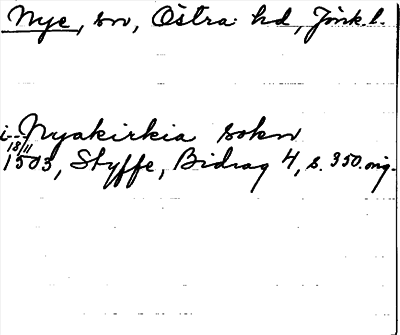 Nye, sn, Östra hd, Jönk l.
i Nyakirkia sokn
18/11
1503, Styffe, Bidrag 4, s. 350. orig.